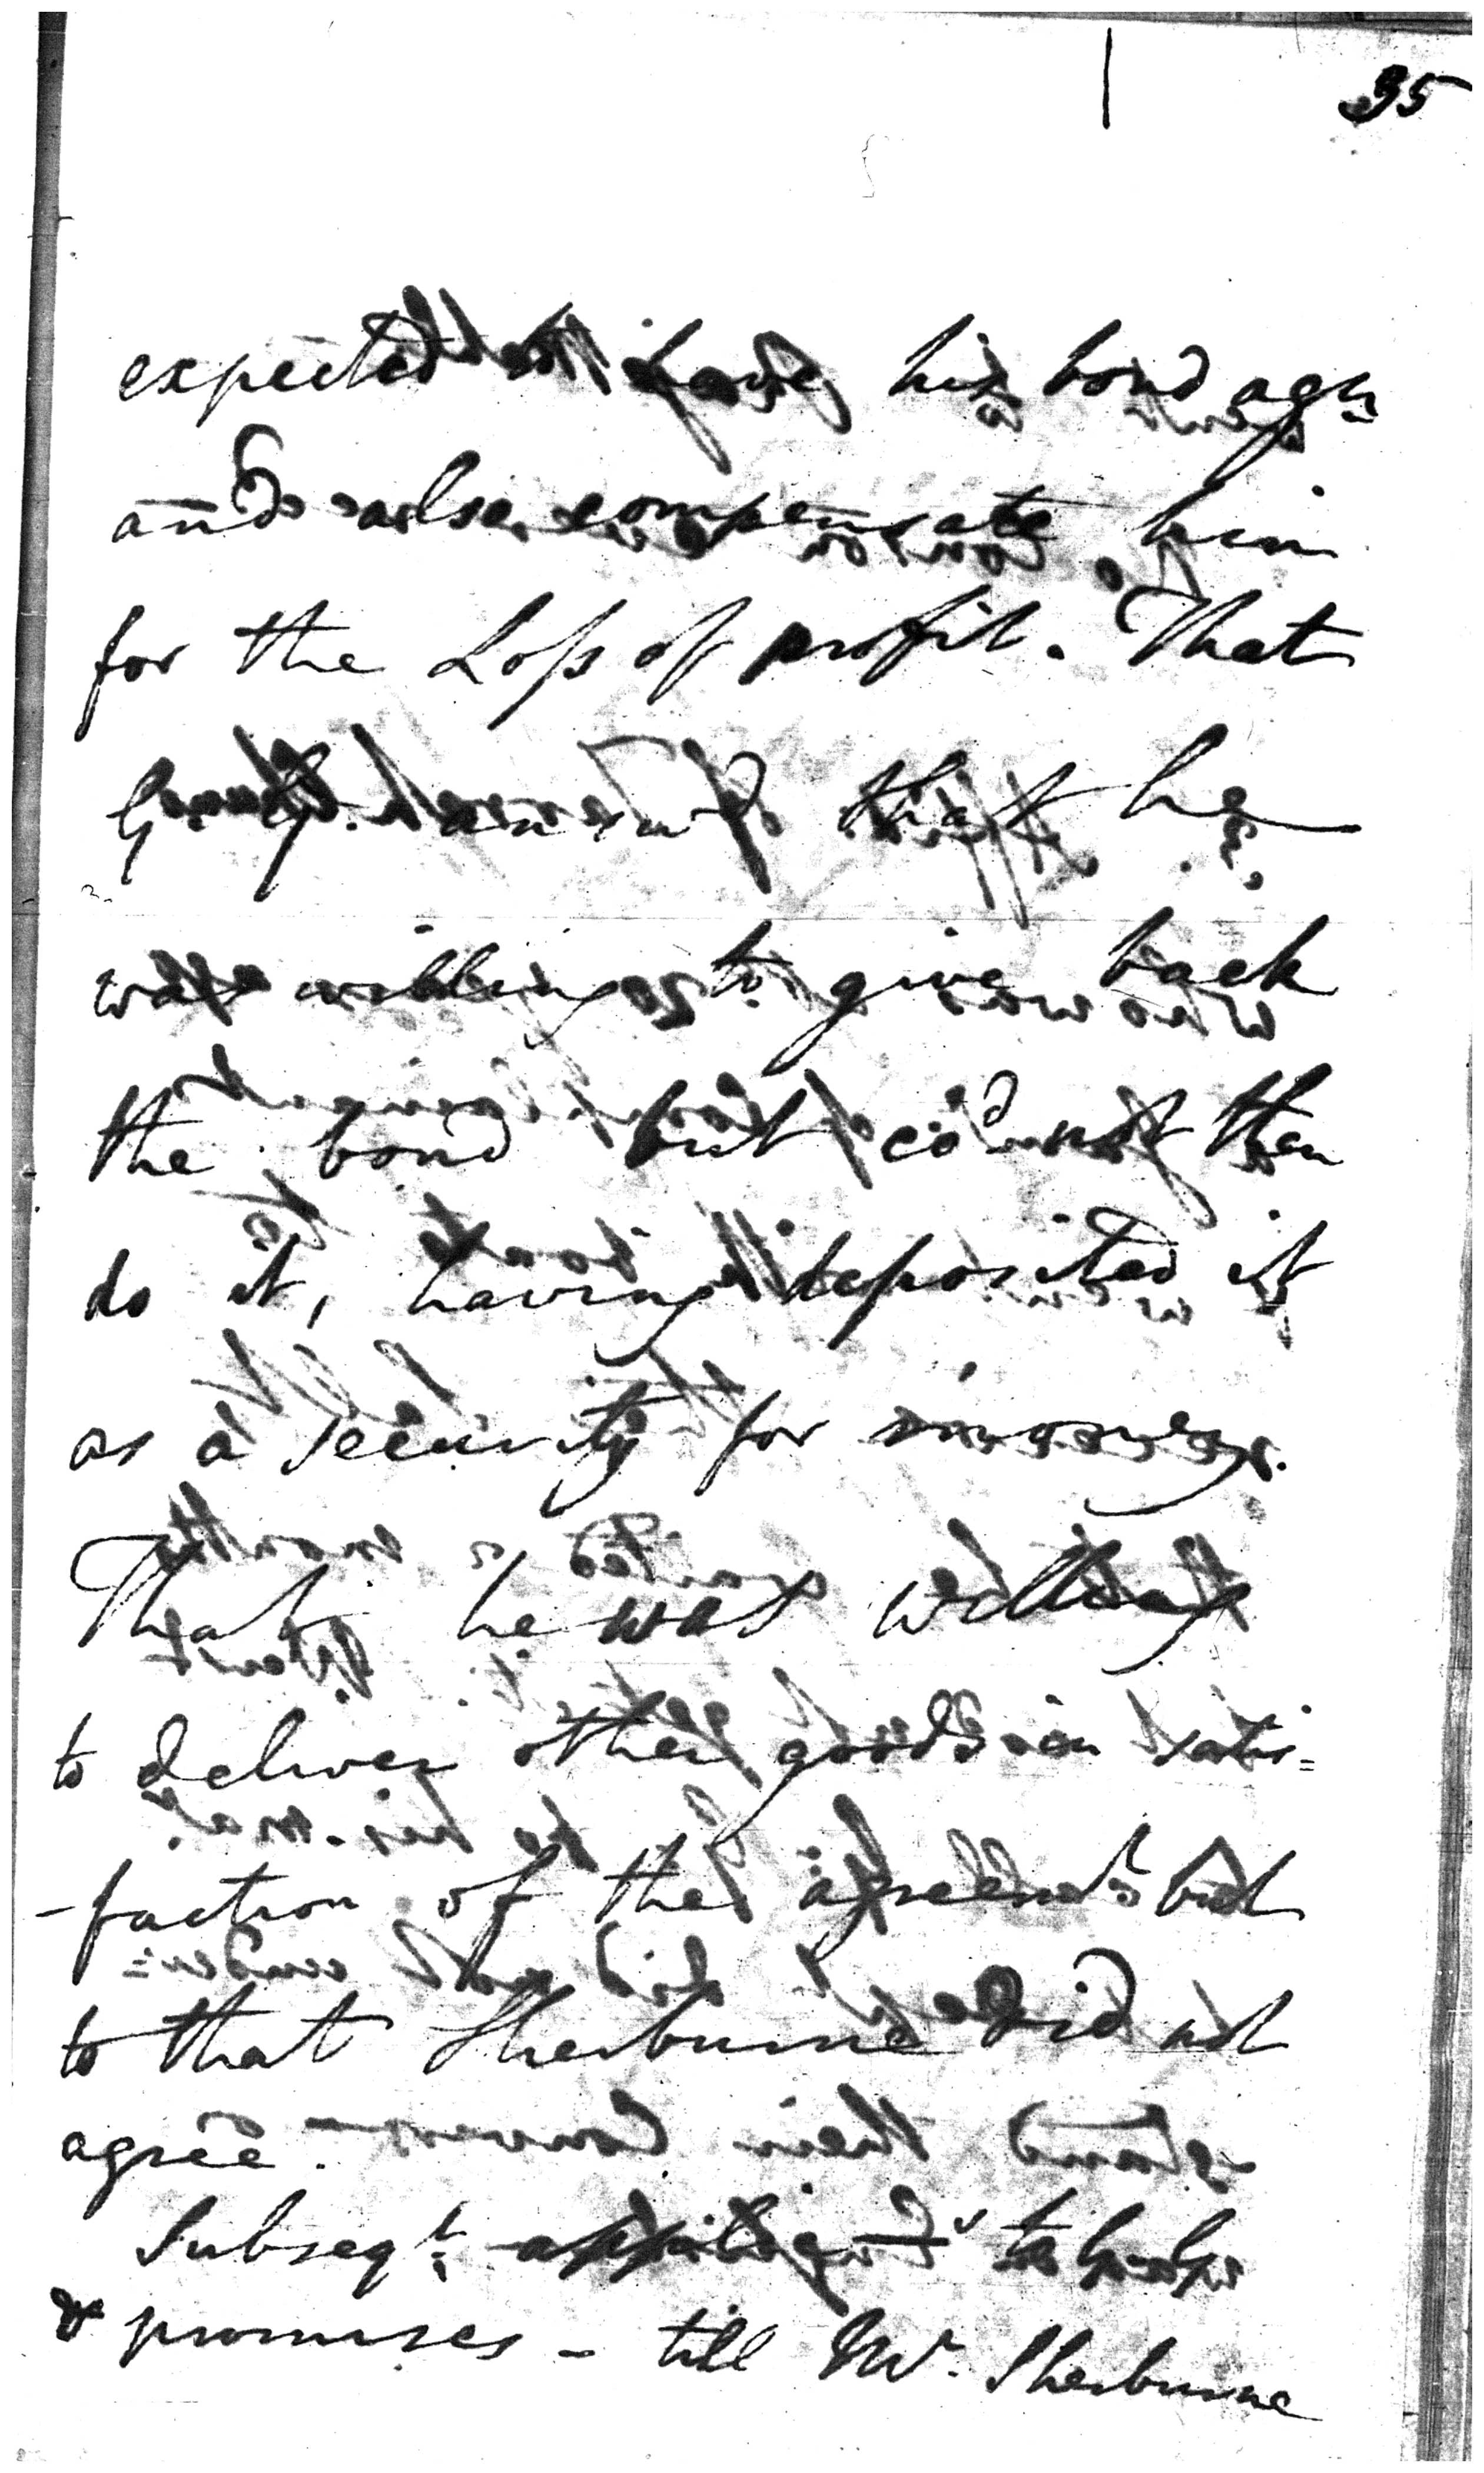 35
expected to have his bond agn
and also compensate him
for the Loss of profit. That
answd that he
was willing to give back
the bond but cod not then
do it, having deposited it
as a security for money.
That he was willing
to deliver other goods in satis=
-faction of the agreemt but
to that Sherburne did not
agree.
Subseqt to
& promises - till Mr. Sherburne